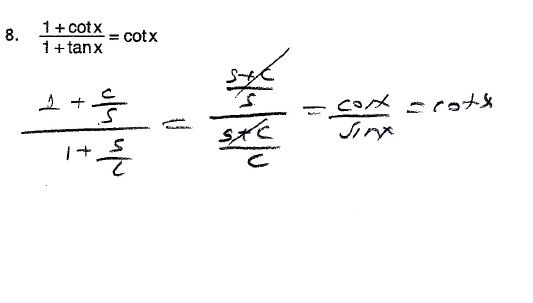 8. (1 + cotx)/(1 + tanx) = cotx
(1 + c/s)/(1 + s/c) = ((s+c)/s)/((s+c)/c) = cosx/sinx = cotx